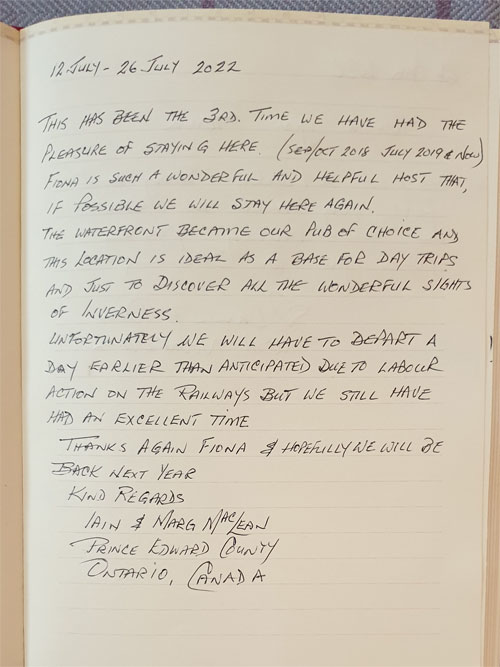 12 JULY - 26 JULY 2022
THIS HAS BEEN THE 3RD. TIME WE HAVE HAD THE
PLEASURE OF STAYING HERE. (SEP/OCT 2018 JULY 2019 & NOW)
FIONA IS SUCH A WONDERFUL AND HELPFUL HOST THAT,
IF POSSIBLE WE WILL STAY HERE AGAIN.
THE WATERFRONT BECAME OUR PUB OF CHOICE AND
THIS LOCATION IS IDEAL AS A BASE FOR DAY TRIPS
AND JUST TO DISCOVER ALL THE WONDERFUL SIGHTS
OF INVERNESS.
UNFORTUNATELY WE WILL HAVE TO DEPART A
DAY EARLIER THAN ANTICIPATED DUE TO LABOUR
ACTION ON THE RAILWAYS BUT WE STILL HAVE
HAD AN EXCELLENT TIME
THANKS AGAIN FIONA & HOPEFULLY WE WILL BE
BACK NEXT YEAR
KIND REGARDS
IAIN & MARG MACLEAN
PRINCE EDWARD COUNTY
ONTARIO, CANADA